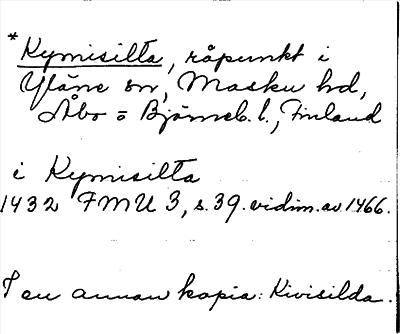 *Kymisilta, råpunkt i
Yläne sn, Masku hd,
Åbo o Björneb. l., Finland
i Kymisilta
1432 FMU 3, s. 39. vidim. av 1466.
I en annan kopia: Kivisilda.